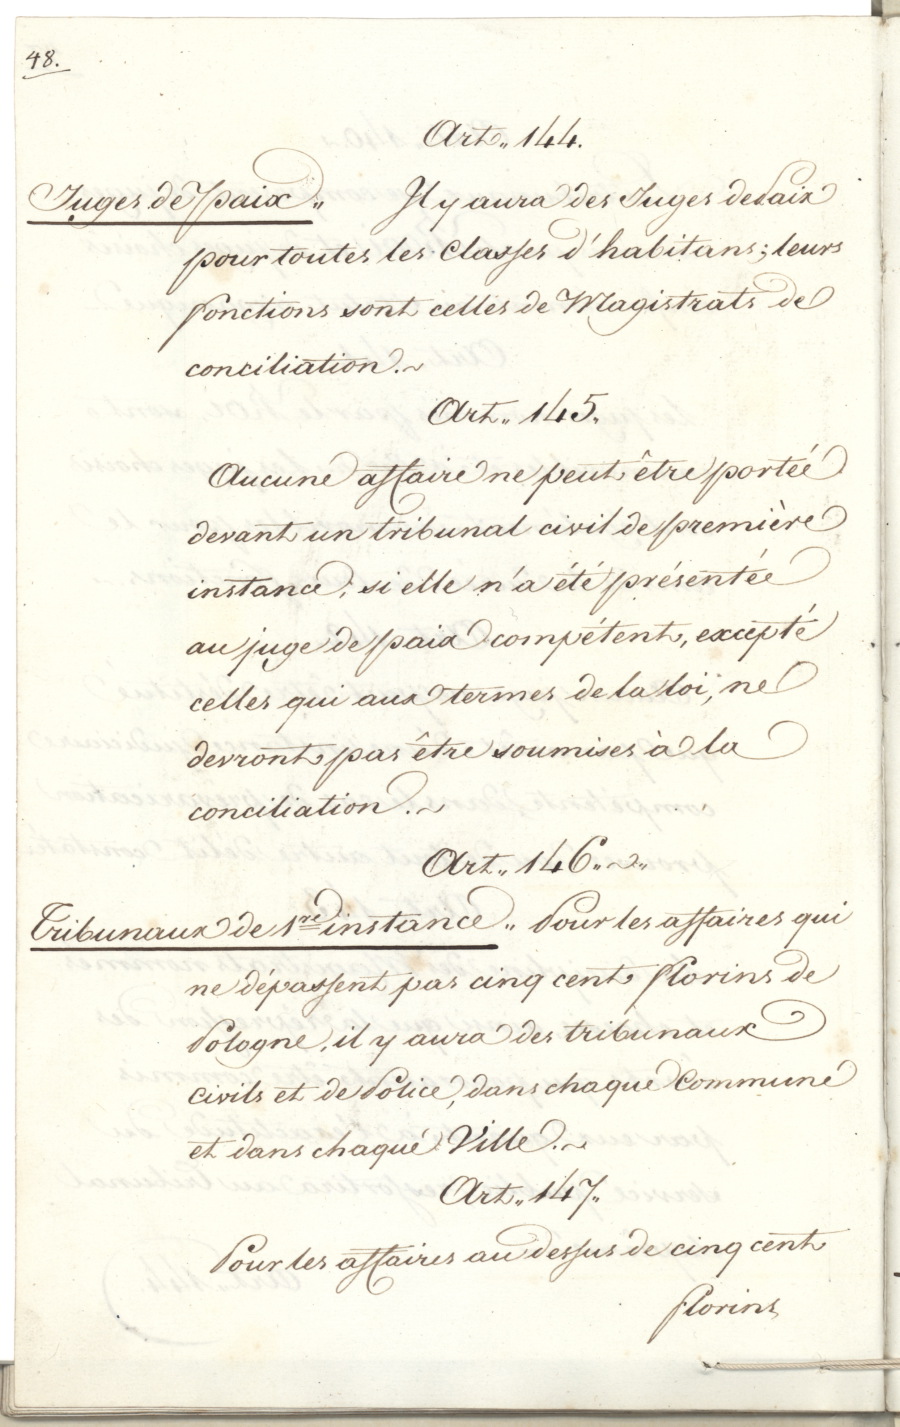 48.
Art. 144.
Juges de paix„ Il y aura des Juges de Paix
pour toutes les Classes d'habitans; leurs
fonctions sont celles de Magistrats de
conciliation.~
Art„ 145.
Aucune affaire ne peut être portéé
devant un tribunal civil de première
instance, si elle n'a été présentée
au juge de paix compétent, excepté
celles qui aux termes de la loi, ne
devront pas être soumises à la
conciliation.~
Art„ 146„~„
Tribunaux de 1re instance„ Pour les affaires qui
ne dépassent pas cinq cent florins de
Pologne, il y aura des tribunaux
civils et de Police, dans chaque Commune
et dans chaqué Ville.~
Art„ 147„
Pour les affaires au dessus de cinq cent
florins